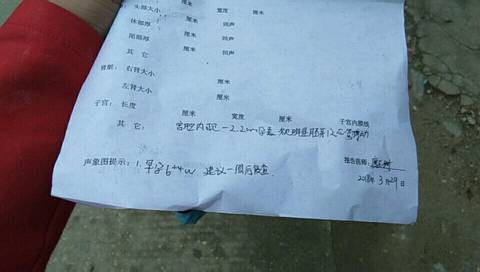 头部大小 厘米 宽度 厘米
体部厚 厘米 回声
尾部厚 厘米 回声
其 它
肾脏: 右肾大小 厘米
左肾大小 厘米
子宫: 长度 厘米 宽度 厘米 子宫内膜线
其 它: 宫腔内见一2.2cm
声象图提示: 1.早孕6+4w 建议一周后复查 报告医师:
2018年3月29日